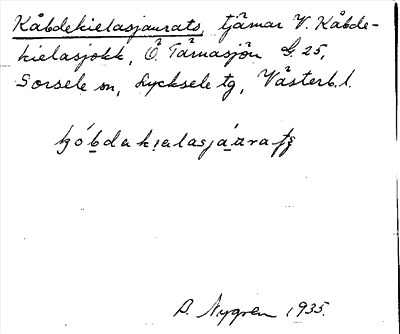 Kåbdekielasjaurats, tjärnar V. Kåbde-
kielasjokk, Ö. Tärnasjön G. 25,
Sorsele sn, Lycksele tg, Västerb. l.
kóbdakialasjáuratș
D. Nygren 1935.